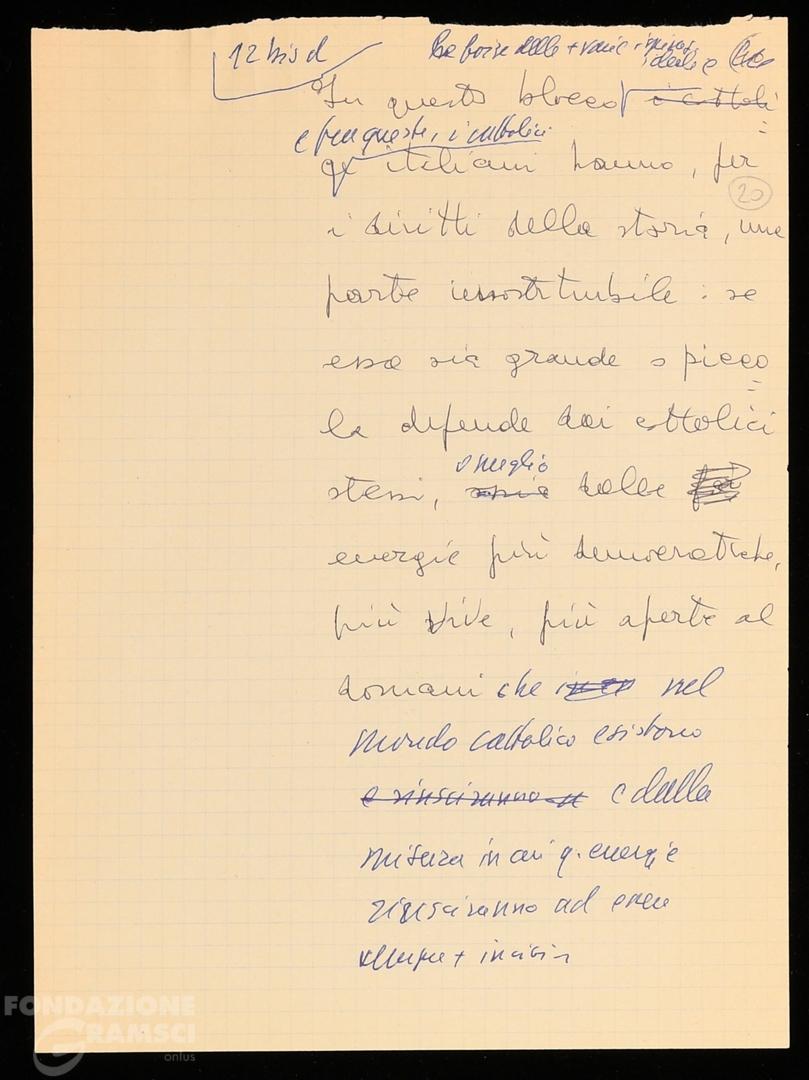 12 bis d
tra forze delle + varie ispiraz.
ideale e
In questo blocco i cattoli=
e fra queste, i cattolici
italiani hanno, per
20
i diritti della storia, una
parte insostituibile: se
essa sia grande o picco=
la difende dai cattolici
stessi, o meglio dalle
energie più democratiche,
più vive, più aperte al
domani che nel
mondo cattolico esistono
e riusciranno e dalla
misura in cui q. energie
riusciranno ad essere
sempre + incisiv
FONDAZIONE
GRAMSCI
onlus